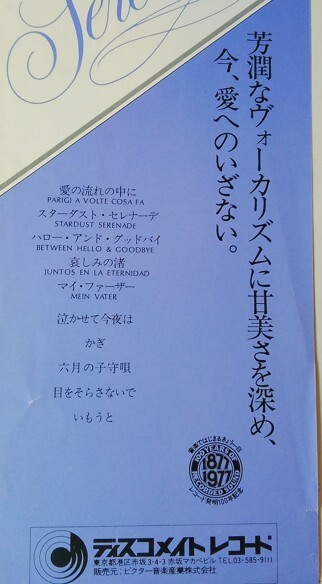 芳潤なヴォーカリズムに甘美さを深め、
今、愛へのいざない。
愛の流れの中に
PARIGI A VOLTE COSA FA
スターダスト・セレナーデ
STARDUST SERENADE
ハロー・アンド・グッドバイ
BETWEEN HELLO & GOODBYE
哀しみの渚
JUNTOS EN LA ETERNIDAD
マイ・ファーザー
MEIN VATER
泣かせて今夜は
かぎ
六月の子守唄
目をそらさないで
いもうと
音楽ではじまるきょう一日
100 YEARS OF
1877
1977
RECORDED SOUND
レコード発明100年記念
ディスコメイト レコード
東京都港区赤坂3-4-3 赤坂マカベビル TEL.03-585-9111
販売元：ビクター音楽産業株式会社